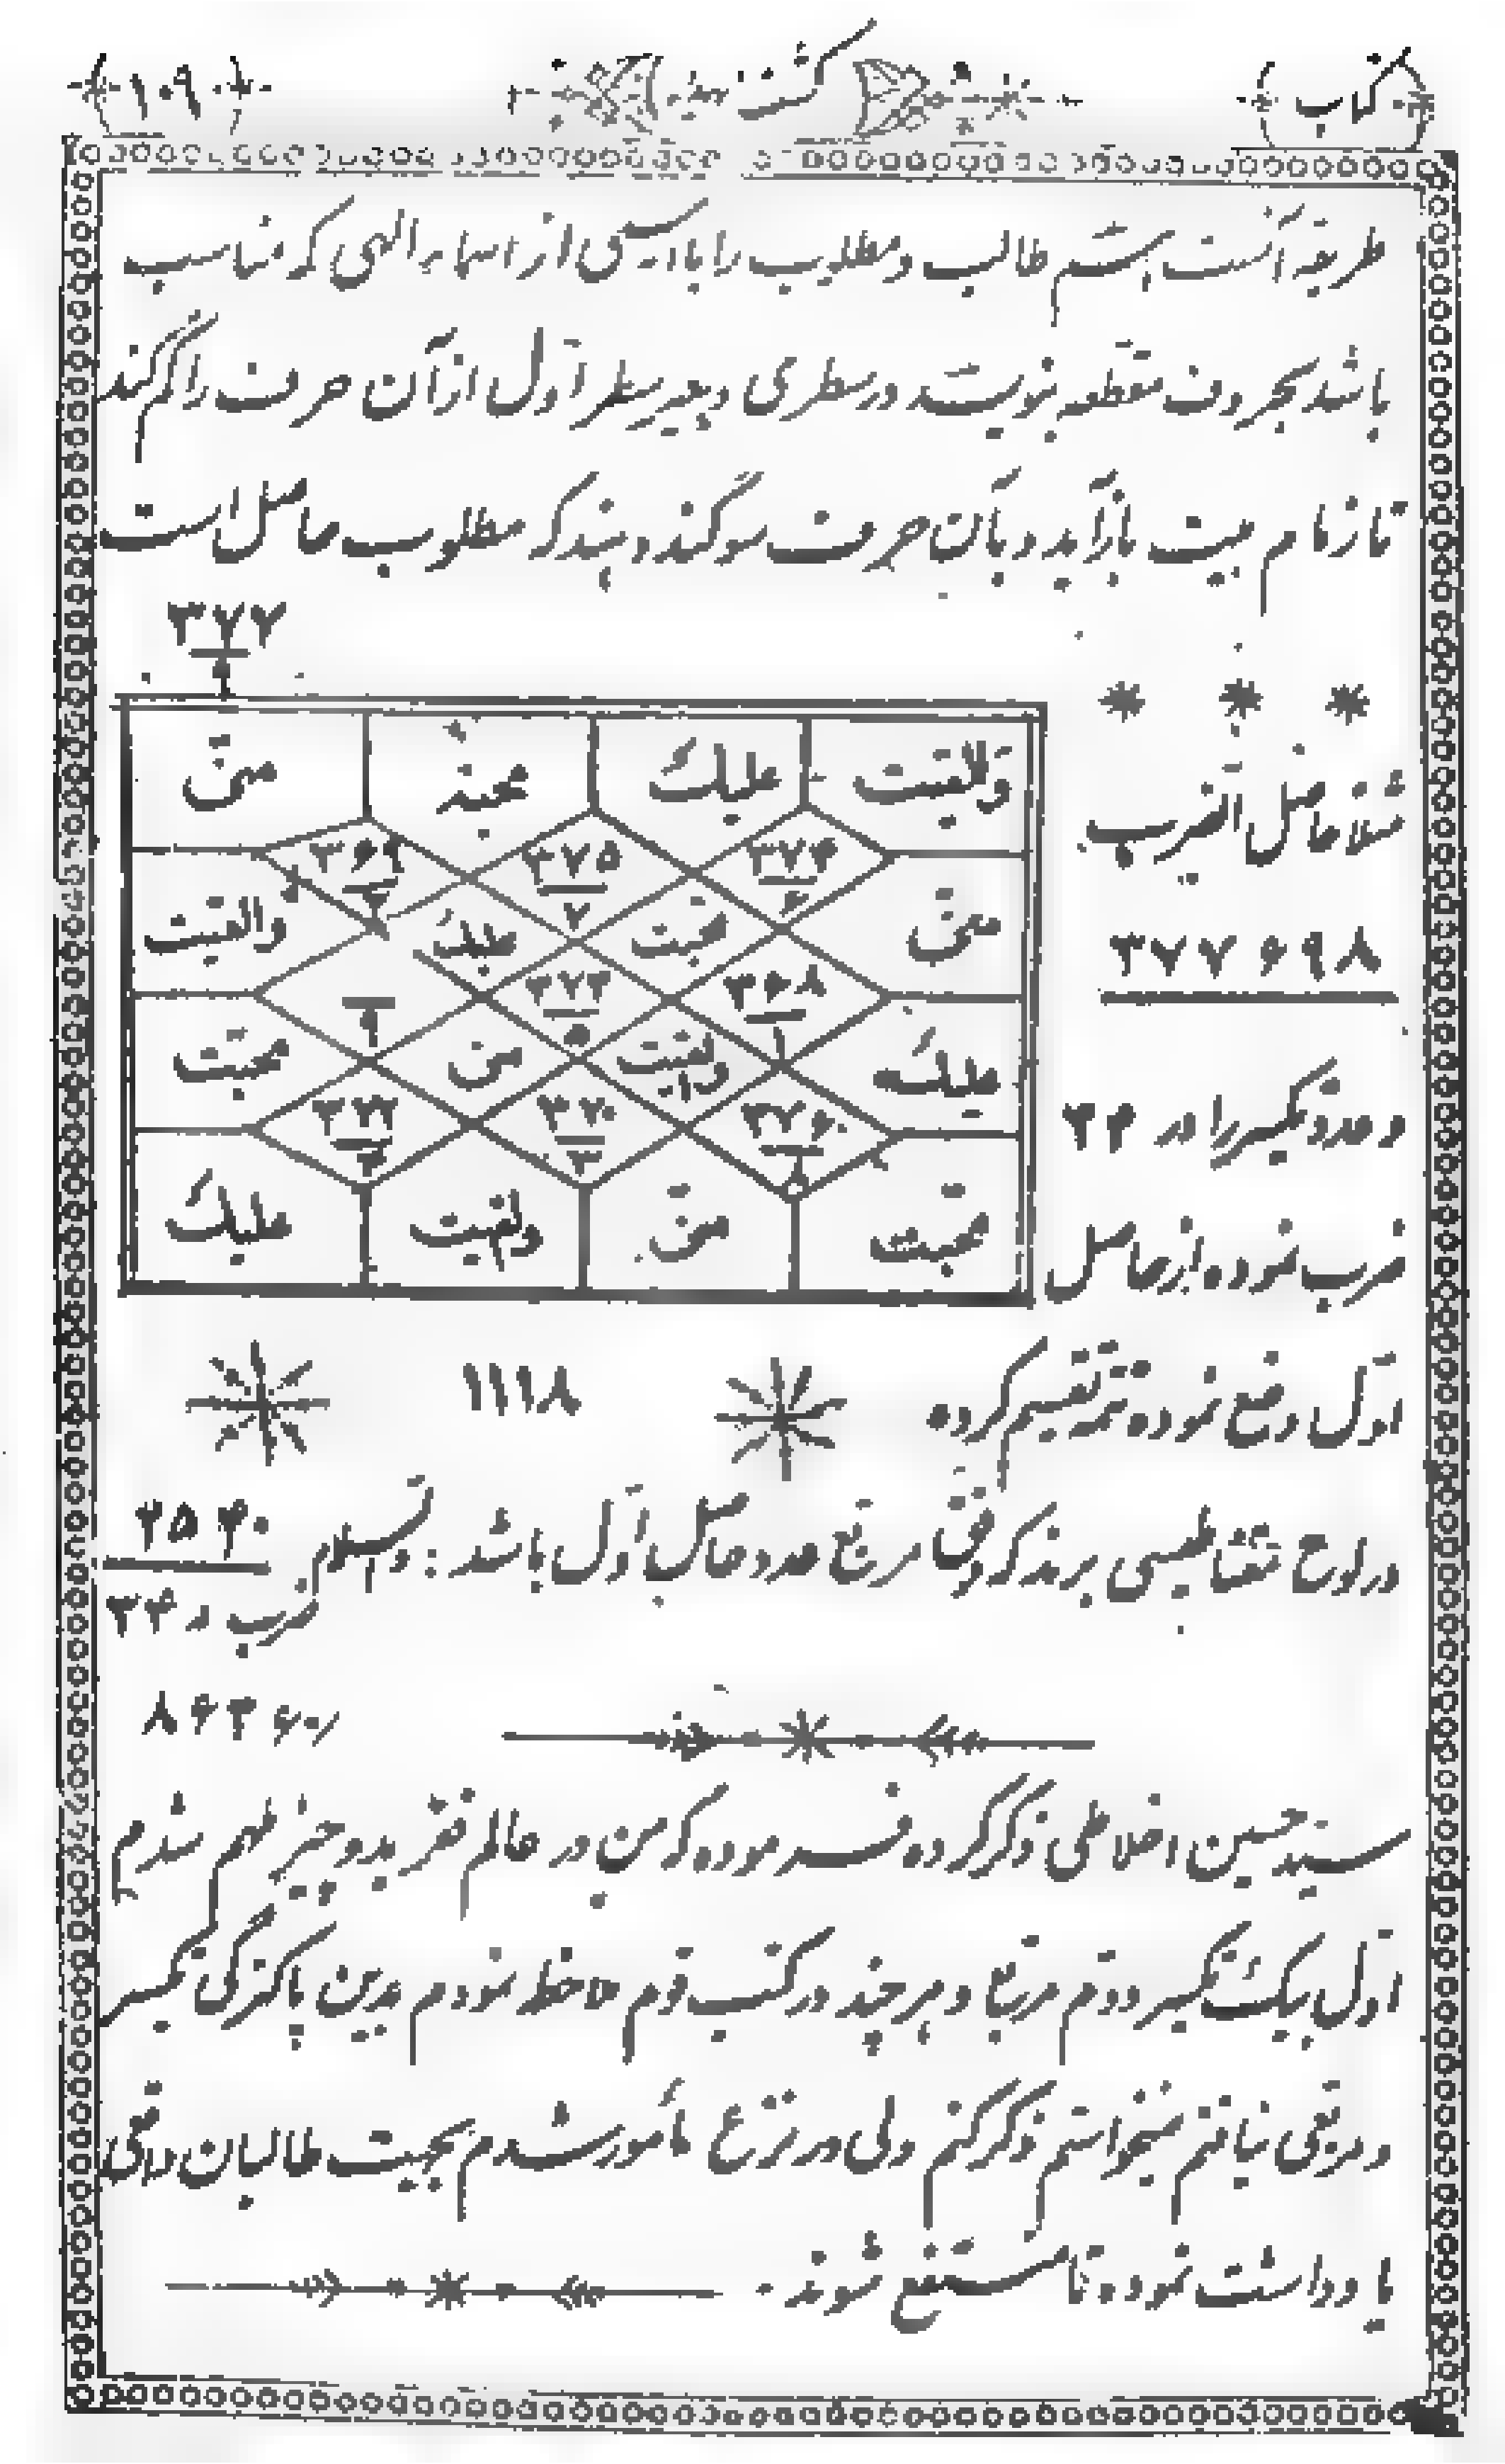 کتاب
۱۰۹
طریقه آنست اسم طالب و مطلوب را با اسمی از اسماء الهی که مناسب
باشد بحروف مقطعه بنویسد در سطری و بعد سطر اول از آن حرف را کم کند
تا زمام میت بازآید و بآن حرف سوگند دهند که مطلوب حاصل است
۳۷۷
۹
والقیت علیک محبة منی
مثلا حاصل الضرب
۳۶۹ ۳۷۵ ۳۷۴
۲ ۷ ۶
منی محبت علیک والقیت
۳۷۷۶۹۸
۳۷۳ ۳۶۸
۵ ۱
علیک والقیت منی محبت
و عدد تکسیر را در ۲۴
۳۷۲ ۳۷۰ ۳۷۶
۴ ۳ ۸
محبت منی والقیت علیک
ضرب نموده از حاصل
اول وضع نموده تتمه تقسیم کرده
۱۱۱۸
در لوح مغناطیسی برند که وفق مربع عدد حاصل اول باشد : والسلام
۲۵۴۰
ضرب در ۲۴
۸۶۳۶۰
سید حسین اخلاطی ذکر کرده فرموده که من در عالم فخر بدو چیز ملهم شدم
اول بیک تکسیر دوم مربع و هر چند در کتب قوم ملاحظه نمودم بدین پاکیزگی تکسیر
و مربعی نیافتم نمیخواستم ذکر کنم ولی مأمور شدم بجهت طالبان واقعی
یادداشت نموده تا منتفع شوند